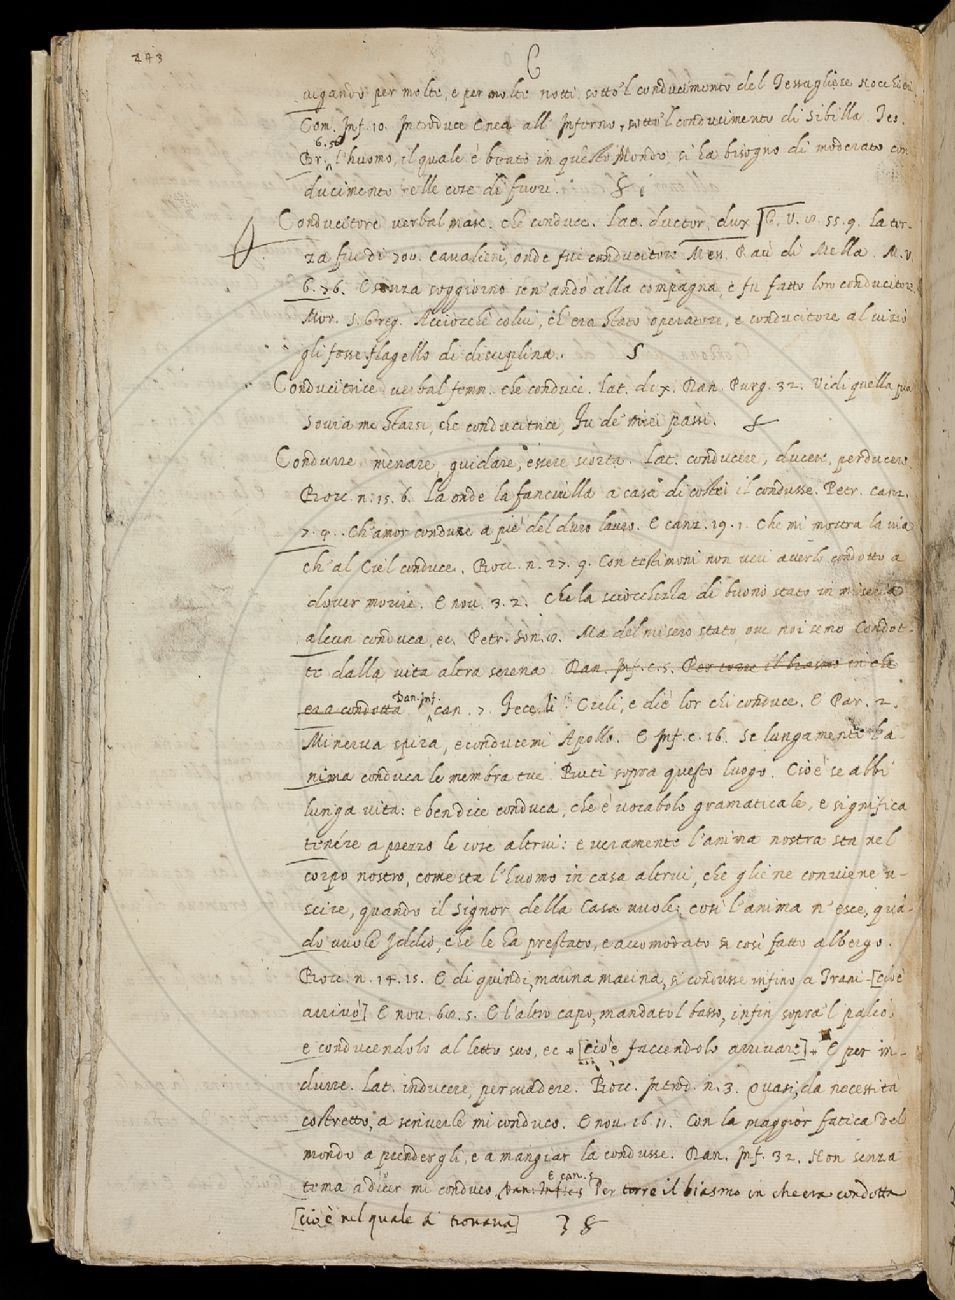 243
C
uigando per molte, e per molte notti, sotto'l conducimento del
Com. Inf. 10. Introduce Enea all'Inferno, sotto'l conducimento di Sibilla. Tes.
Br. 6. l'huomo, il quale è botato in questo Mondo, si ha bisogno di moderato con
ducimento nelle cose di fuori.
Conducitore verbal masc. che conduce. Lat. ductor, dux. G. V. 8. 55. 9. La ter-
za fue di 700. Cavalieri, onde fue conducitore Mes. Raù di Nella. M. V.
6. 76. E sanza soggiorno sen'andò alla compagna, e fu fatto loro conducitore.
Mor. S. Greg. Acciocchè colui, ch'era stato operatore, e conducitore al vizio
gli fosse flagello di disciplina.
Conducitrice verbal femm. che conduce. Lat. dux. Dan. Purg. 32. Vidi quella pia
Sovra me starsi, che conducitrice, Fu de' miei passi.
Condurre menare, guidare, essere scorta. Lat. conducere, ducere, perducere.
Bocc. n. 15. 6. La onde la fanciulla a casa di costei il condusse. Petr. canz.
7. 9. Ch'amor conduce a piè del duro lauro. E canz. 19. 1. Che mi mostra la via
ch'al Ciel conduce. Bocc. n. 27. 9. Con testimoni non veri averlo condotto a
dover morire. E nov. 3. 2. Che la sciocchezza di buono stato in miseria
alcun conduca, ec. Petr. Son. 8. Ma del misero stato ove noi semo Condot-
te dalla vita altra serena. Dan. Inf. c. 5. Per torre il biasmo in che
era condotta Dan. Inf. can. 7. Fece li Cieli, e diè lor chi conduce. E Par. 2.
Minerva spira, e conducemi Apollo. E Inf. c. 16. Se lungamente l'a
nima conduca le membra tue. Buti sopra questo luogo. Cioè se abbi
lunga vita: e ben dice conduca, che è vocabolo gramaticale, e significa
tenére a prezzo le cose altrui: e veramente l'anima nostra sta nel
corpo nostro, come sta l'huomo in casa altrui, che gliene conviene u-
scire, quando il signor della Casa vuole; così l'anima n'esce, quã-
do vuole Iddio, che le ha prestato, e accomodato sì così fatto albergo.
Bocc. n. 14. 15. E di quindi, marina marina, si condusse infino a Trani [cioè
arrivò] E nov. 68. 5. E l'altro capo, mandatol basso, infin sopra'l palco,
e conducendolo al letto suo, ec [cioè faccendolo arrivare] E per in-
durre. Lat. inducere, persuadere. Bocc. Introd. n. 3. Quasi, da necessità
costretto, a scriverle mi conduco. E nov. 16. 11. Con la maggior fatica del
mondo a prendergli, e a mangiar la condusse. Dan. Inf. 32. Non senza
tema a dicer mi conduco. Dan. Inf. c. 5 E can. 5. Per torre il biasmo in che era condotta
[cioè nel quale si trovava]